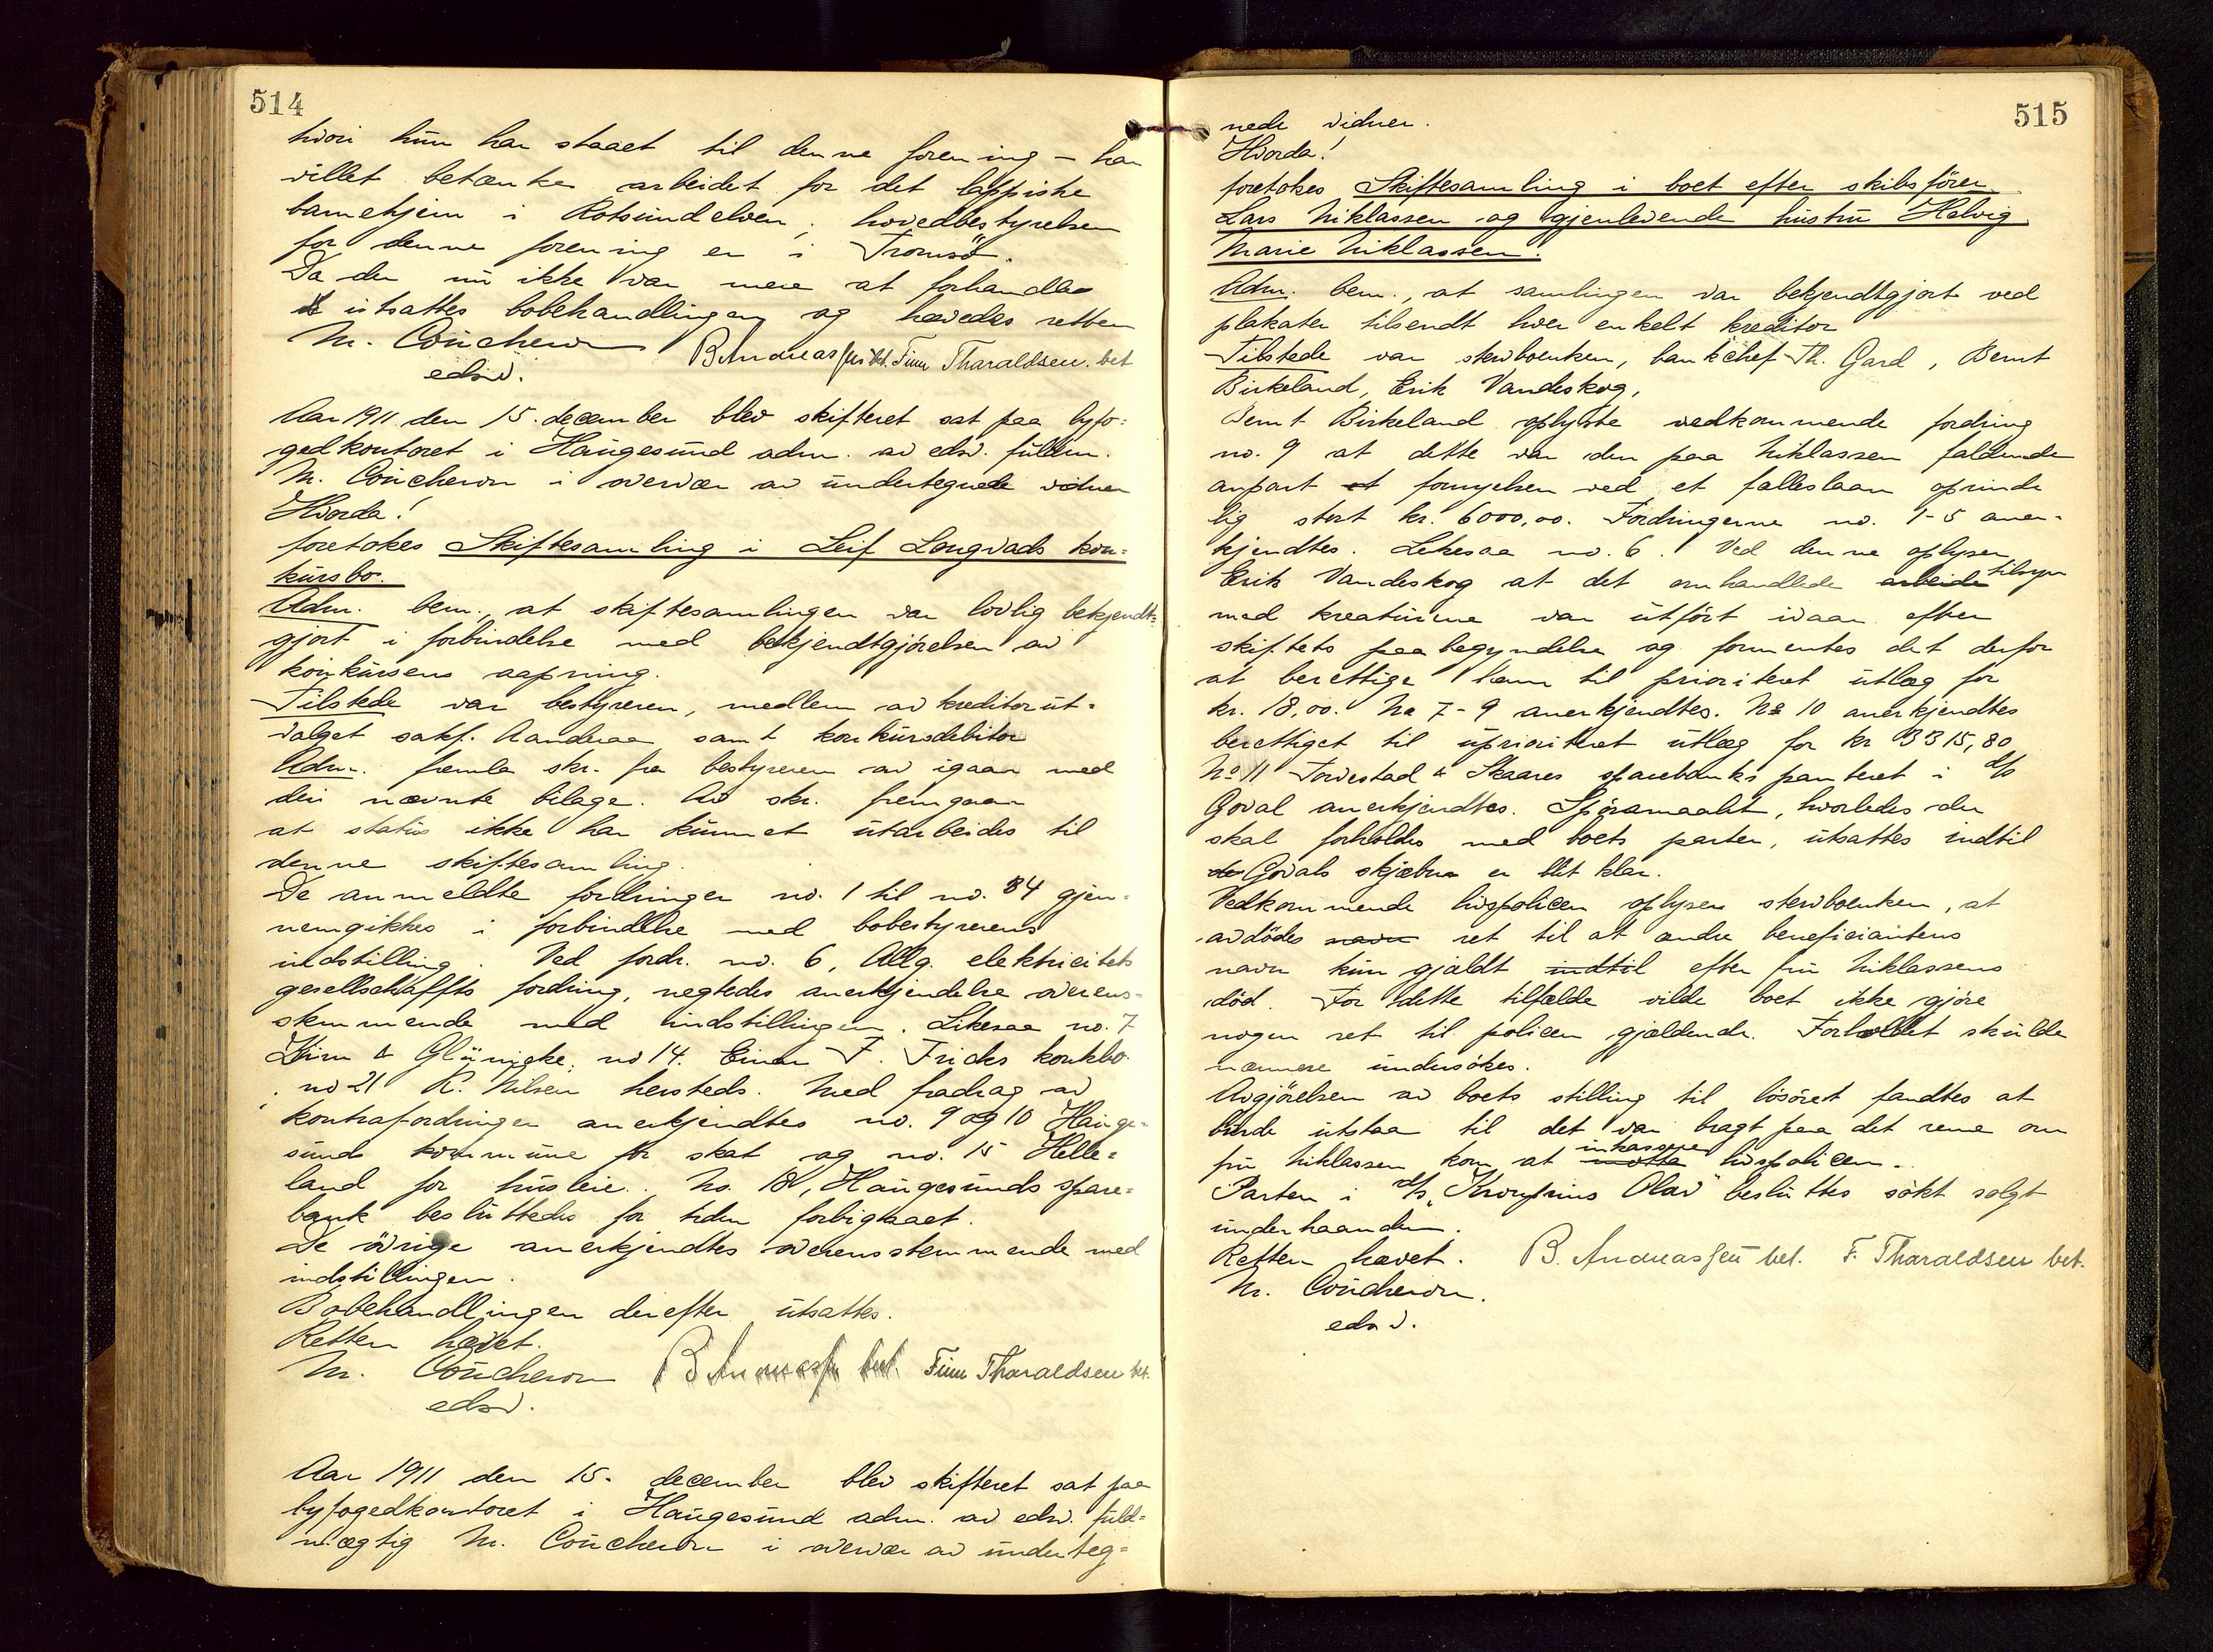 514
hvori hun har staaet til denne forening – har
villet betænke arbeidet for det lappiske
barnehjem i Rotsundelven; hovedbestyrelsen
for denne forening er i Tromsö.
Da der nu ikke var mere at forhandle
utsattes bobehandlingen og hævedes retten
M. Coucheron B. Andreassen bet. Finn Tharaldsen. bet
edsv.
Aar 1911 den 15. december blev skifteret sat paa byfo=
gedkontoret i Haugesund adm. av edsv. fuldm.
M. Coucheron i overvær av undertegnede vidner
Hvorda!
foretokes Skiftesamling i Leif Longvads kon=
kursbo.
Adm. bem., at skiftesamlingen var lovlig bekjendt=
gjort i forbindelse med bekjendtgjörelsen av
konkursens aapning.
Tilstede var bestyreren, medlem av kreditorut=
valget sakf. Aanderaa samt konkursdebitor
Adm. fremla skr. fra bestyreren av igaar med
deri nævnte bilage. Av skr. fremgaar
at status ikke har kunnet utarbeides til
denne skiftesamling.
De anmeldte fordringer no. 1 til no. 84 gjen=
nemgikkes i forbindelse med bobestyrerens
indstilling. Ved fordr. no. 6, Allg. elektricitets
gesellschaffts fordring, negtedes anerkjendelse overens=
stemmende med indstillingen. Likesaa no. 7
& no 14. Einar F. Trides konkbo.
no 21 R. Nilsen hersteds. Med fradrag av
kontrafordringer anerkjendtes no. 9 og 10 Hauge=
sunds kommune for skat og no. 15 Helle=
land for husleie. No. 18, Haugesunds spare=
bank besluttedes for tiden forbigaaet.
De övrige anerkjendtes overensstemmende med
indstillingen.
Bobehandlingen derefter utsattes.
Retten hævet.
M. Coucheron B. Andreassen bet. Finn Tharaldsen bet.
edsv.
Aar 1911 den 15. december blev skifteret sat paa
byfogedkontoret i Haugesund adm. av edsv. fuld=
mægtig M. Coucheron i overvær av underteg=
515
nede vidner.
Hvorda!
foretokes Skiftesamling i boet efter skibsförer
Lars Niklassen og gjenlevende hustru Helvig
Marie Niklassen.
Adm. bem., at samlingen var bekjendtgjort ved
plakater tilsendt hver enkelt kreditor
Tilstede var sterboenken, bankchef Th. Gard, Bernt
Birkeland, Erik Vandeskog,
Bernt Birkeland oplyste vedkommende fordring
no. 9 at dette var den paa Niklassen faldende
anpart at fornyelsen ved et fælleslaan oprinde
lig stort kr. 6000,00. Fordringerne no. 1-5 aner=
kjendtes. Likesaa no. 6. Ved denne oplyser
Erik Vandeskog at det omhandlede arbeide tilsyn
med kreaturene var utfört ivaar efter
skiftets paabegyndelse og formentes det derfor
at berettige ham til prioritert utlæg for
kr. 18,00. No 7-9 anerkjendtes. No 10 anerkjendtes
berettiget til uprioritert utlæg for kr 3315,80
No 11 Torvestad & Skaares sparebanks panteret i d/s
Goval anerkjendtes. Spörsmaalet, hvorledes der
skal forholdes med boets parter, utsattes indtil
de Govals skjæbne er blit klar.
Vedkommende livspolicen oplyser sterboenken, at
avdödes navn ret til at ændre beneficiantens
navn kun gjaldt indtil efter fru Niklassens
död. For dette tilfælde vilde boet ikke gjöre
nogen ret til policen gjældende. Forholdet skulde
nærmere undersökes.
Avgjörelsen av boets stilling til lösöret fandtes at
burde utstaa til det var bragt paa det rene om
fru Niklassen kom at motta inkassere livspolicen.
Parten i d/s "Kronprins Olav" besluttes sökt solgt
underhaanden.
Retten hævet. B. Andreassen bet. F. Tharaldsen bet.
M. Coucheron.
edsv.